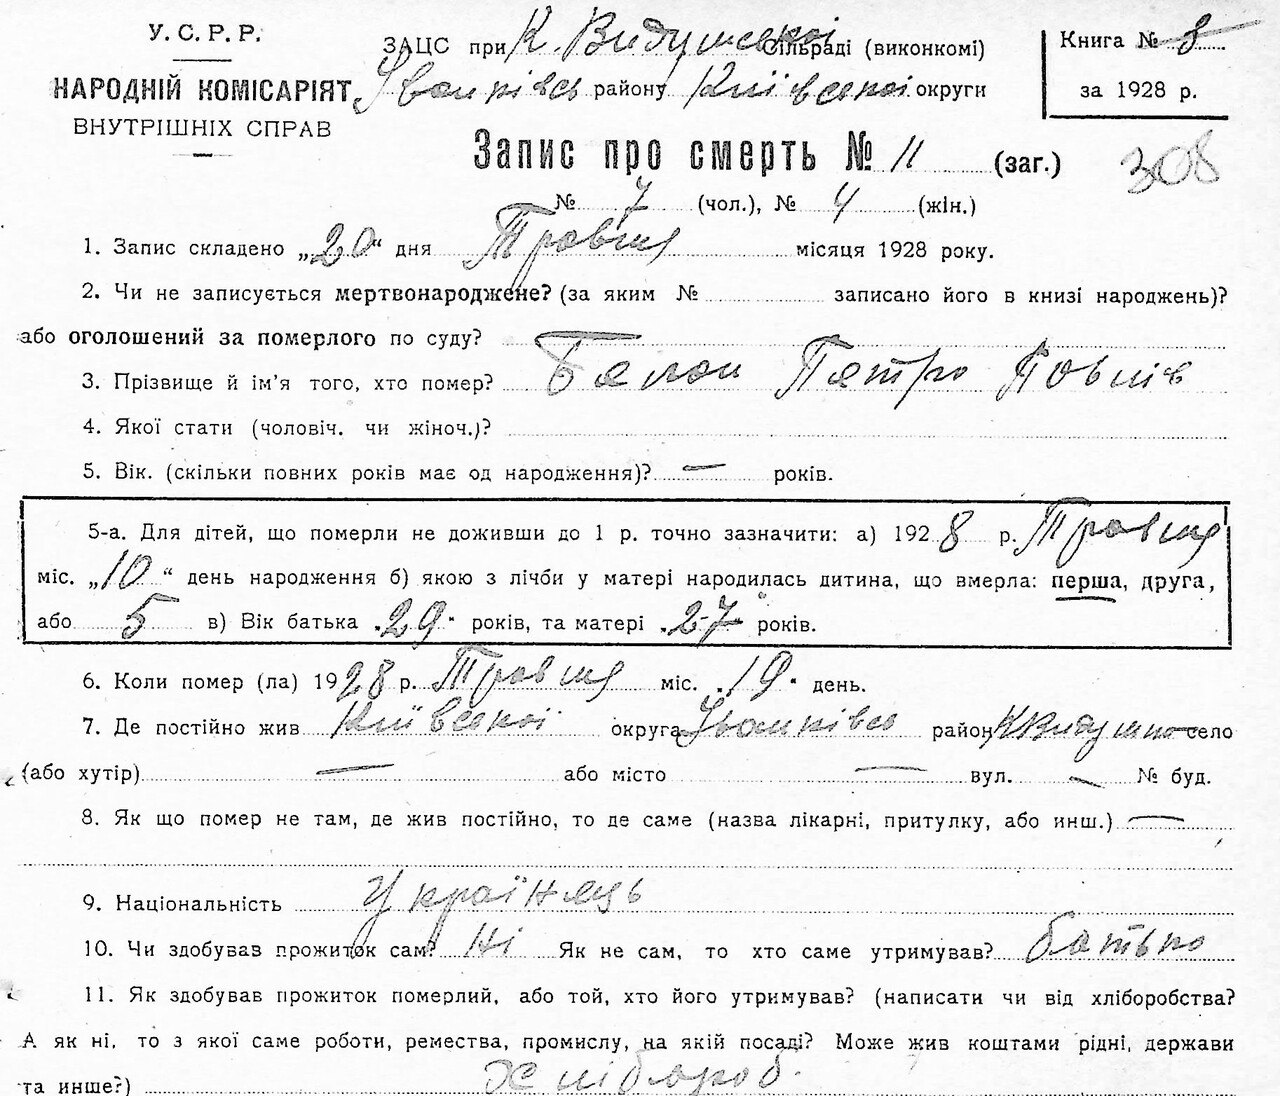 У. С. Р. Р.
НАРОДНІЙ КОМІСАРІЯТ
ВНУТРІШНІХ СПРАВ
ЗАЦС при К. Видумської сільраді (виконкомі)
Іванківсь району Київської округи
Книга № 3
за 1928 р.
Запис про смерть № 11 (заг.)
308
№ 7 (чол.), № 4 (жін.)
1. Запис складено „20“ дня Травня місяця 1928 року.
2. Чи не записується мертвонароджене? (за яким № записано його в книзі народжень)?
або оголошений за померлого по суду?
3. Прізвище й ім'я того, хто помер? Петро
4. Якої стати (чоловіч. чи жіноч.)?
5. Вік. (скільки повних років має од народження)? — років.
5-а. Для дітей, що померли не доживши до 1 р. точно зазначити: а) 1928 р. Травня
міс. „10“ день народження б) якою з лічби у матері народилась дитина, що вмерла: перша, друга,
або 5 в) Вік батька 29 років, та матері 27 років.
6. Коли помер (ла) 1928 р. Травня міс. 19 день.
7. Де постійно жив Київської округа Іванківсь район село
(або хутір) — або місто — вул. — № буд.
8. Як що помер не там, де жив постійно, то де саме (назва лікарні, притулку, або инш.) —
9. Національність Українець
10. Чи здобував прожиток сам? Ні Як не сам, то хто саме утримував? батько
11. Як здобував прожиток померлий, або той, хто його утримував? (написати чи від хліборобства?
А як ні, то з якої саме роботи, ремества, промислу, на якій посаді? Може жив коштами рідні, держави
та инше?) Хлібороб.